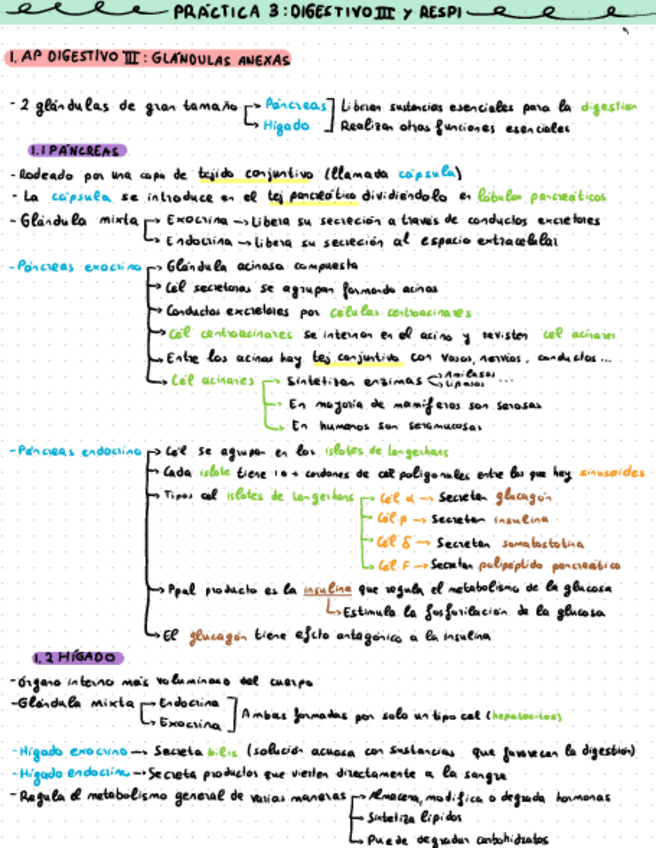 PRÁCTICA 3: DIGESTIVO III Y RESPI
1. AP DIGESTIVO III: GLÁNDULAS ANEXAS
- 2 glándulas de gran tamaño → Páncreas Liberan sustancias esenciales para la digestión
→ Hígado Realizan otras funciones esenciales
1.1 PÁNCREAS
- Rodeado por una capa de tejido conjuntivo (llamada cápsula)
- La cápsula se introduce en el tej pancreático dividiéndolo en lóbulos pancreáticos
- Glándula mixta → Exocrina → Libera su secreción a través de conductos excretores
→ Endocrina → Libera su secreción al espacio extracelular
- Páncreas exocrino → Glándula acinosa compuesta
→ Cél secretoras se agrupan formando acinos
→ Conductos excretores por células centroacinares
→ Cél centroacinares se internan en el acino y revisten cél acinares
→ Entre los acinos hay tej conjuntivo con vasos, nervios, conductos...
→ Cél acinares → Sintetizan enzimas Amilasas Lipasas ...
→ En mayoría de mamíferos son serosas
→ En humanos son seromucosas
- Páncreas endocrino → Cél se agrupan en los islotes de Langerhans
→ Cada islote tiene 1 o + cordones de cél poligonales entre los que hay sinusoides
→ Tipos cel islotes de Langerhans → Cél α → Secretan glucagón
→ Cél β → Secretan insulina
→ Cél δ → Secretan somatostatina
→ Cél F → Secretan polipéptido pancreático
→ Ppal producto es la insulina que regula el metabolismo de la glucosa
→ Estimula la fosforilación de la glucosa
→ El glucagón tiene efcto antagónico a la insulina
1.2 HÍGADO
- Órgano interno más voluminoso del cuerpo
- Glándula mixta → Endocrina
→ Exocrina Ambas formadas por solo un tipo cel (hepatocitos)
- Hígado exocrino → Secreta bilis (solución acuosa con sustancias que favorecen la digestión)
- Hígado endocrino → Secreta productos que vierten directamente a la sangre
- Regula el metabolismo general de varias maneras → Almacena, modifica o degrada hormonas
→ Sintetiza lípidos
→ Puede degradar carbohidratos